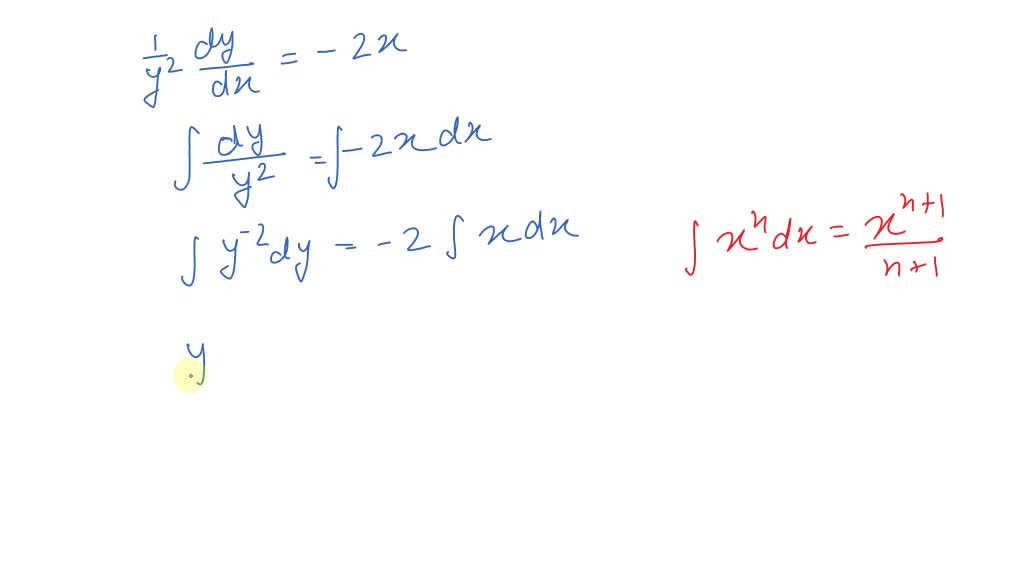 1/y² dy/dx = - 2x
∫ dy/y² = ∫ -2x dx
∫ y⁻² dy = -2 ∫ x dx
∫ xⁿ dx = xⁿ⁺¹/n+1
y